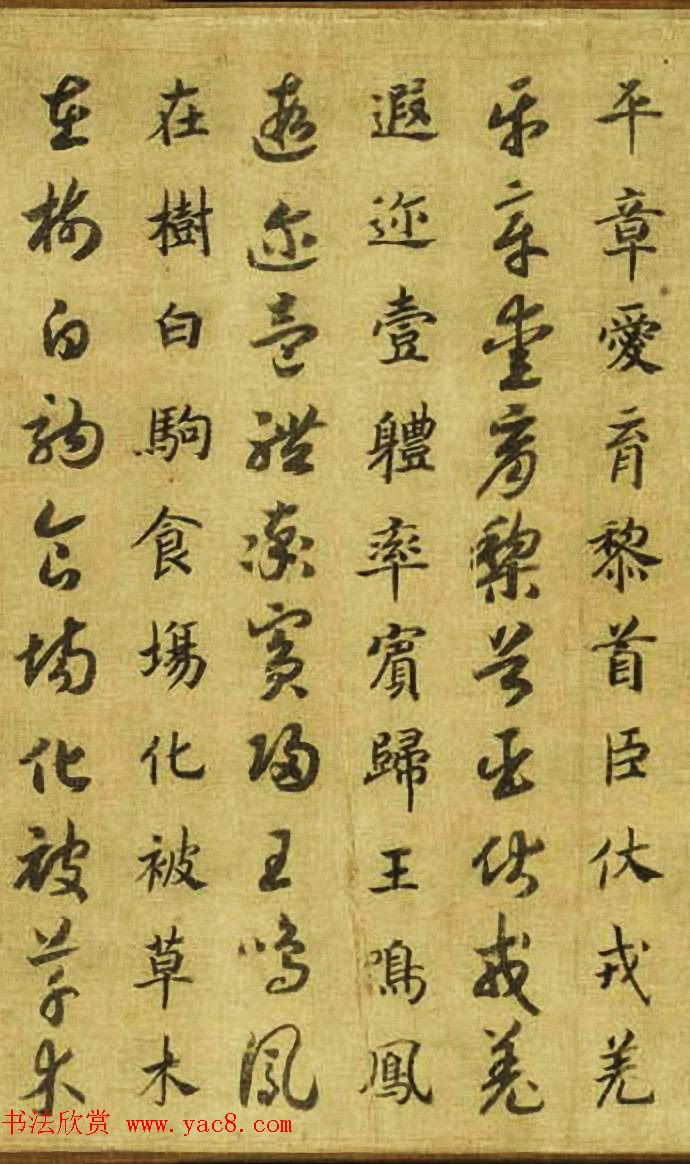 平章愛育黎首臣伏戎羌
平章愛育黎首臣伏戎羌
遐迩壹體率賓歸王鳴鳳
遐迩壹體率賓歸王鳴鳳
在樹白駒食場化被草木
在樹白駒食場化被草木
书法欣赏 www.yac8.com